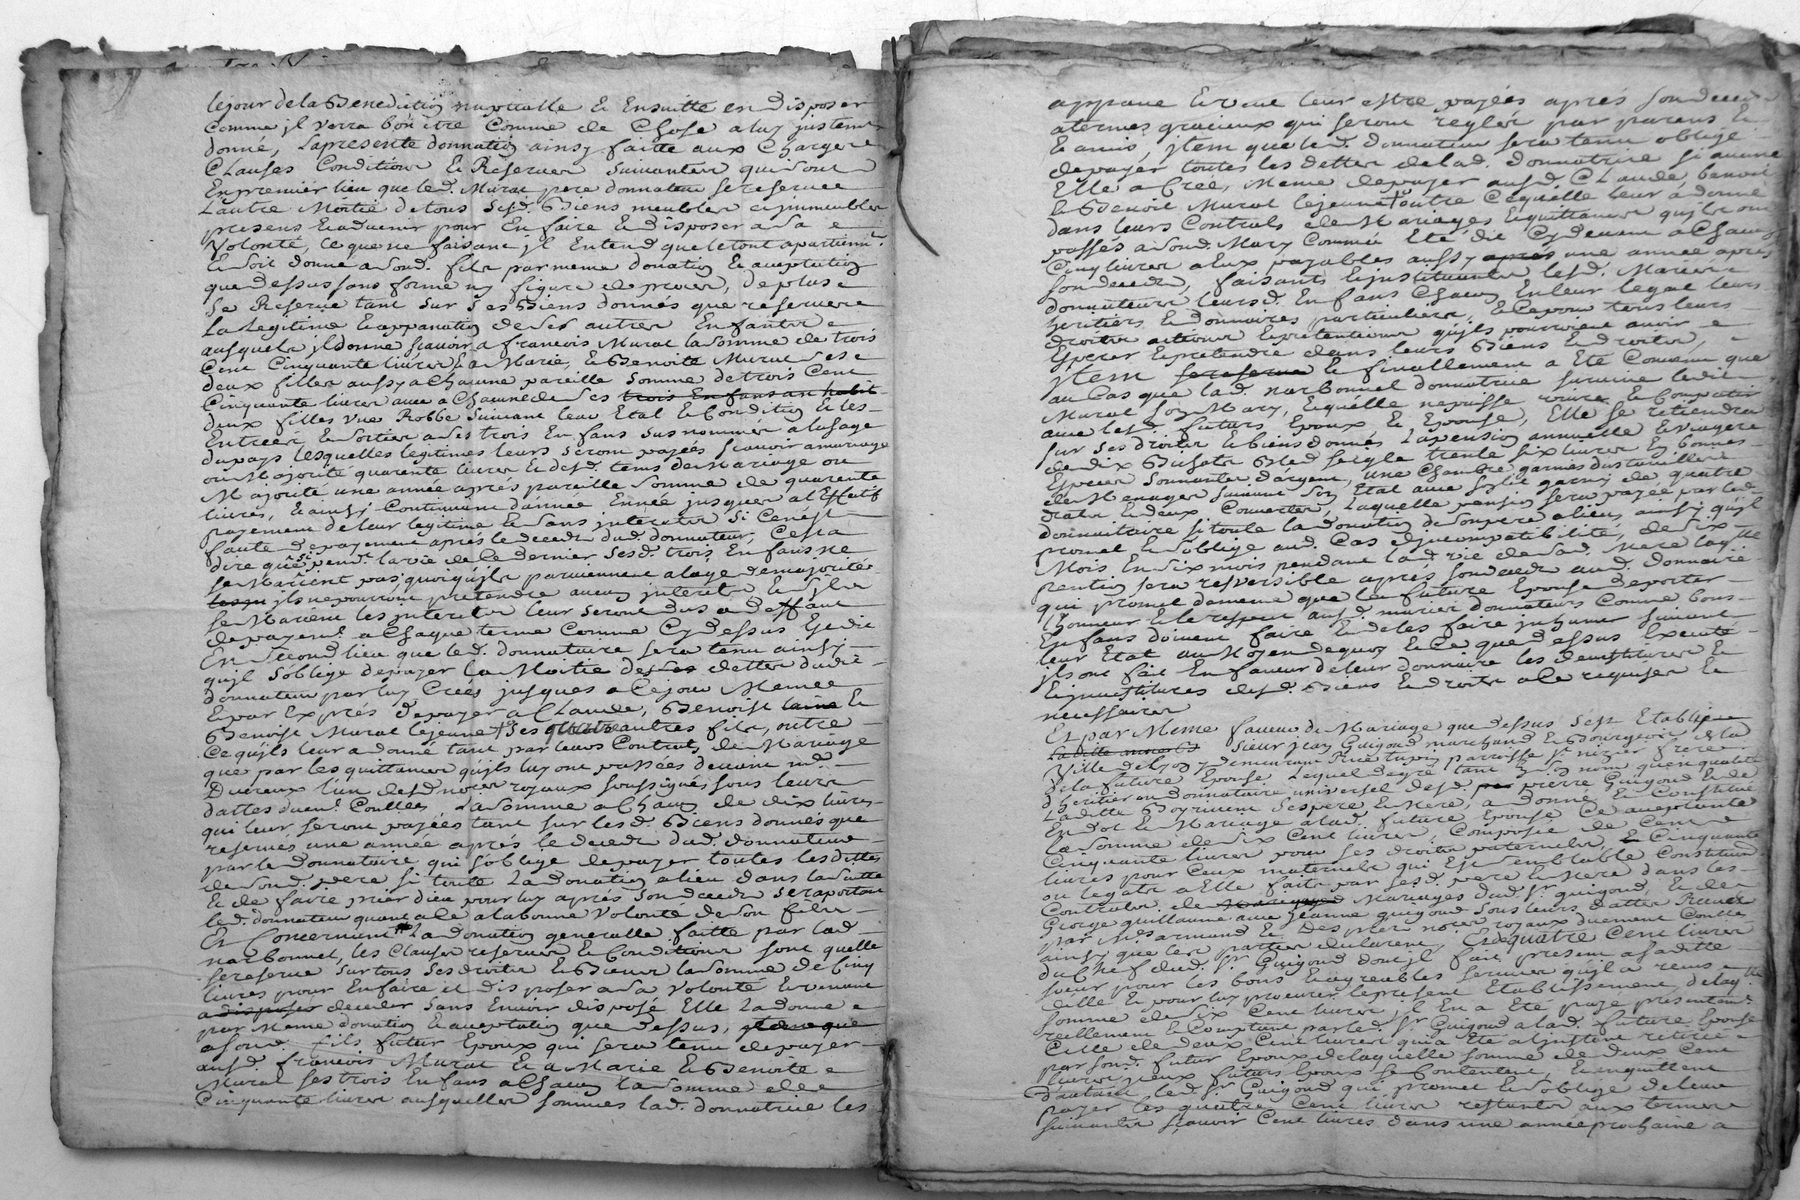 lejour de la Benediction nuptialle & Ensuitte en disposer
comme jl verra bon etre comme de Chose a luy justement
donné, Lapresente donnation ainsy faitte aux Charges
Clauses Conditions & Reserves suivantes qui sont
Enpremier lieu que led. Murat pere donnateur se reserve
Lautre Moitié detous sesd. Biens meubles et jmmeubles
presens & advenir pour En faire & disposer a sa
Volonté, ce que ne faisant jl Entend que letout apartienne
& soit donné a sond. fils par meme donation & aceptation
que dessus sans forme ny figure de proces, de plus
se Reserve tant sur ses Biens donnés que reservés
La Legitime & apanation de ses autres Enfants
ausquels jl donne scavoir a francois Murat la somme de trois
Cent Cinquante livres & a Marie, & Benoite Murat ses
deux filles aussy a chacune pareille somme de trois Cent
Cinquante livres avec a chacune de ses trois Enfans un habit
deux filles une Robbe suivant leur Etat & Condition & les
Entrées & sorties a ses trois En fans sus nommés a lusage
du pays lesquelles legitimes leurs seront payées scavoir a mariage
ou Majorité quarente livres & desd. tems de Mariage ou
Majorité une année aprés pareille somme de quarente
livres, & ainsy Continuant d'année En née jusques al Effectif
payement de leur legitime & sans jnterets si cenest
faute depayement aprés le deceds dud. donnateur, Cest a
dire que si pend.t la vie de Ce dernier sesd. trois En fans ne
se Marient pas quoiquils parviennent a lage de majorité
jls nepourront pretendre aucun jnterets & sils
se Marient les jnterets leur seront dus a deffaut
depayem.t a Chaque terme comme Cydessus Est dit
En second lieu que led. donnataire sera tenu ainsy
quil soblige depayer la Moitié des dettes dudit
donnateur par luy Créés jusques a Cejour Memee
& par Exprés depayer a Claude, Benoist & 
Benoist Murat lejeune ses autres fils, outre
Ce quils leur a donné tant par leurs Contrats de Mariage
que par les quittances quils luy ont passées devant md.
Duereux lun desd. notaires royaux soussignés, sous leurs
dattes duem.t Conllées La somme a Chacun de dix livres
qui leur seront payées tant sur lesd. Biens donnés que
reservés une année aprés le deceds dud. donnateur
par le donnataire qui soblige depayer toutes les dettes
de sond. pere si toute la donation a lieu dans la suitte
& de faire prier dieu pour luy aprés son deceds se raportant
led. donnateur quant a ce a la bonne volonté de son fils
Et Concernant la donation generalle faitte par lad.
narbonnet, les Clauses reserves & Conditions sont quelle
se reserve sur tous ses droits & Biens la somme de Cinq
livres pour Enfaire et disposer a sa volonté & venant
a deceder sans Envoir disposé Elle la donne
par Meme donation & aceptation que dessus,
a sond. fils futur Epoux qui sera tenu depayer
ausd. francois Murat & a Marie & Benoite
Murat ses trois En fans a Chacun la somme de
Cinquante livres ausquelles sommes lad. donnatrice les
appane & veut leur estre payées aprés son deceds
a termes gracieux qui seront reglés par parens &
& amis, jtem que led. donnateur sera tenu oblige
depayer toutes les dettes de lad. donnatrice si aucune
Elle a Cree, Meme depayer ausd. Claude benoit
& Benoit Murat lejeune outre Ce quelle leur a donné
dans leurs Contrats de Mariages & quittances quils ont
passés a sond. Mary Comme Eté dit Cydevant a Chacun
Cinq livres a Eux payables aussy une année aprés
son deceds, faisants & jnstituants lesd. Mariés
donnateurs leursd. En fans Chacun En leur legat leurs
heritiers & donnaires particuliers, & Ce pour tous leurs
droits actions & pretentions quils pourroient avoir,
Esperer & pretendre dans leurs Biens & droits,
jtem & finallement a Eté Convenu que
au Cas que lad. narbonnet donnatrice survive ledit
Murat son Mary, & quelle nepuisse vivre & Compatir
avec lesd. futurs Epoux, & Epouse, Elle se retiendra
sur ses droits & biens donnés Lapension annuelle & viagere
de dix Bichets Bled seigle trente six livres En bonnes
Especes sonnantes d'argent, une Chambre garnie dustancilles
de Menager suivant son Etat avec son lit garny de quatre
draps & deux Couvertes, laquelle pension sera payée par led.
donnataire si toute la donation de son pere a lieu ainsy quil
promet & soblige aud. Cas djncompatibilité, de six
Mois En six mois pendant lad. vie de sad. Mere laqlle
pention sera reversible aprés son deceds aud. donnaire
qui promet de meme que la future Epouse deporter
lhonneur & le respect ausd. mariés donnateurs comme bons
Enfans doivent faire & deles faire jnhumer suivant
leur Etat au Moyen dequoy & Ce que dessus Executé
jls ont fait En faveur deleur donnaire les demissitures &
& jnvestitures desd. Biens & droits a Ce requises &
necessaires
Et par Meme faveur de Mariage que dessus sest Etablis
Sieur jean Guigoud marchand & Bourgeois de la
Ville de Lyon y demeurant rue tupin parroisse St nizier frere
de la future Epouse Lequel degré tant En son nom quen qualité
dheritier ou donnataire universel desd. pierre Guigoud & de
Laditte Boyrivent ses pere & Mere, a donné & Constitué
En dot & Mariage a lad. future Epouse Ce aceptante
La somme de six Cent livres, Composée de Cent
Cinquante livres pour ses droits paternels, & Cinquante
livres pour Ceux maternels qui Est semblable Constitution
ou legats a Elle faits par sesd. pere & Mere dans les
Contrats de Mariages dud. sr. guigoud, & de
George guillaume avec jeanne guigoud sous leurs dattes Receus
par Mes armand & Desplen notaires royaux duement Conllé
ainsy que les parties declarent, & les quatre Cent livres
du Chef dud. Sr. Guigoud dont jl fait present a saditte
soeur pour les bons & agreables services quil a reçus
dille & pour luy procurer lepresent Etablissement de laq.lle
somme de six Cent livres, jl En a Eté payé presentem.t
reellement & Comptant par led. Sr. Guigoud a lad. future Epouse
Celle de deux Cent livres qui a Eté a linstant retirée
par sond. futur Epoux de laquelle somme de deux Cent
livres jceux futurs Epoux se Contentent, & enquittent
Dautant led. Sr. Guigoud qui promet & soblige deleur
payer les quatre Cent livres restantes aux termes
suivants scavoir Cent livres dans une année prochaine a